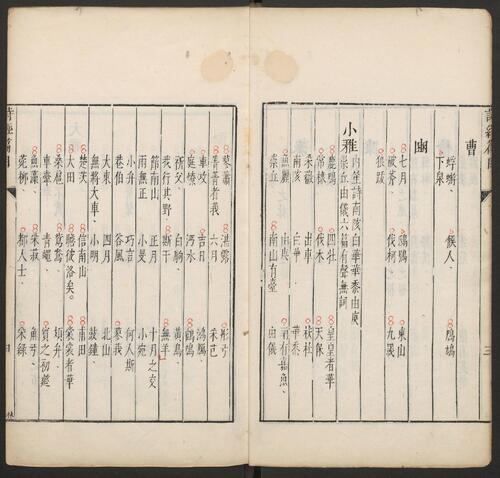 曹
蜉蝣、 候人、 鳲鳩
下泉
豳
七月 鴟鴞 東山
破斧 伐柯 九罭
狼跋
小雅
內笙詩南陔白華華黍由庚
崇丘由儀六篇有聲無詞
鹿鳴 四牡 皇皇者華
常棣 伐木 天保
采薇 出車 杕杜
南陔 白華 華黍
魚麗 由庚 南有嘉魚、
崇丘 南山有臺 由儀
蓼蕭 湛露 彤弓
菁菁者莪 六月 采芑
車攻 吉月 鴻鴈、
庭燎 沔水 鶴鳴
祈父、 白駒、 黃鳥
我行其野 斯干 無羊
節南山 正月 十月之交
雨無正 小旻 小宛
小弁 巧言 何人斯
巷伯 谷風 蓼莪
大東 四月 北山
無將大車、 小明 鼓鐘、
楚茨 信南山 甫田
大田 瞻彼洛矣。 裳裳者華
桑扈 鴛鴦 頍弁、
車舝 青蠅、 賓之初筵
魚藻、 采菽 角弓、
菀柳、 都人士、 采綠